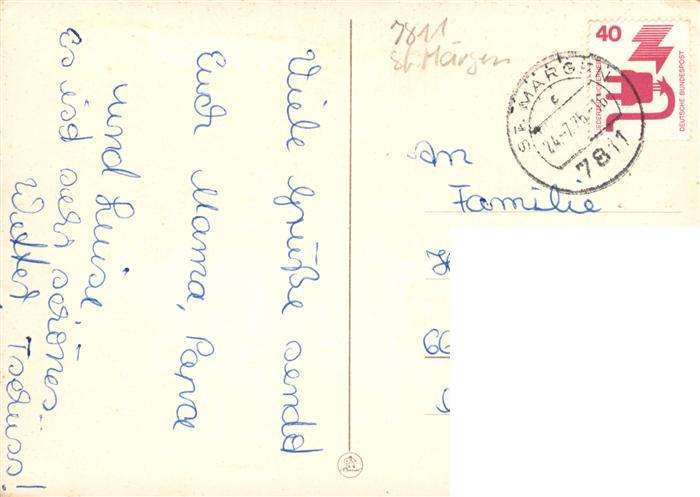 Viele Grüße sendd
Euch Mama, Papa
und Luise.
Es isd sehr schönes
Wetter Tschüss!
7811
St. Märgen
40
DEUTSCHE BUNDESPOST
ST. MÄRGEN
c
24.-7.75
7811
An
Familie
66